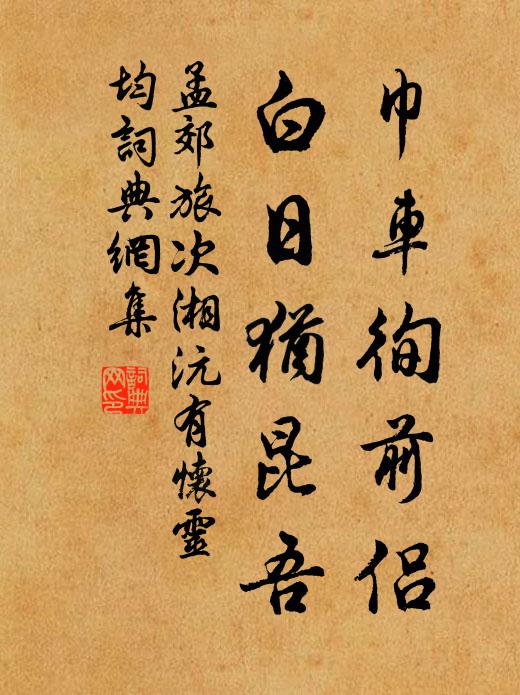 巾車徇前侶
白日猶昆吾
孟郊旅次湘沅有懷靈
均詞典網集
詞典
网印